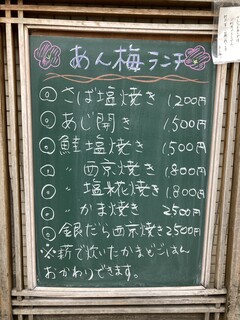 あん梅ランチ
◎さば塩焼き 1200円
◎あじ開き 1,500円
◎鮭塩焼き 1,500円
◎〃西京焼き 1,800円
◎〃塩糀焼き 1,800円
◎〃かま焼き 2500円
◎銀だら西京焼き2500円
※薪で炊いたかまどごはん
おかわりできます。